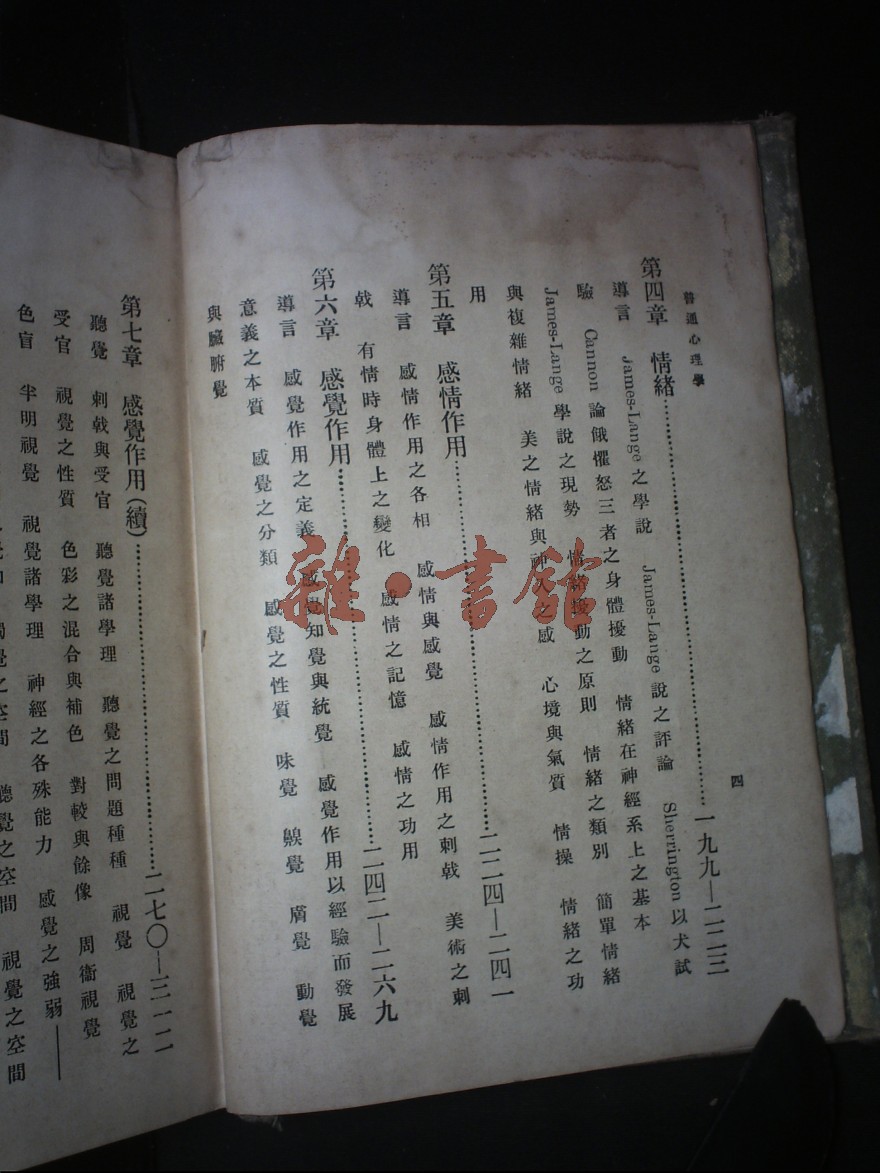 普通心理學
四
第四章　情緒……一九九—二二三
導言　James-Lange 之學說　James-Lange 說之評論　Sherrington 以犬試
驗　Cannon 論餓懼怒三者之身體擾動　情緒在神經系上之基本
James-Lange 學說之現勢　情緒擾動之原則　情緒之類別　簡單情緒
與複雜情緒　美之情緒與神人之感　心境與氣質　情操　情緒之功
用
第五章　感情作用……二二四—二四一
導言　感情作用之各相　感情與感覺　感情作用之刺戟　美術之刺
戟　有情時身體上之變化　感情之記憶　感情之功用
第六章　感覺作用……二四二—二六九
導言　感覺作用之定義　感覺知覺與統覺　感覺作用以經驗而發展
意義之本質　感覺之分類　感覺之性質　味覺　齅覺　膚覺　動覺
與臟腑覺
第七章　感覺作用(續)……二七〇—三一二
聽覺　刺戟與受官　聽覺諸學理　聽覺之問題種種　視覺　視覺之
受官　視覺之性質　色彩之混合與補色　對較與餘像　周衞視覺
色盲　半明視覺　視覺諸學理　神經之各殊能力　感覺之強弱——
觸覺之空間　聽覺之空間　視覺之空間
雜·書館